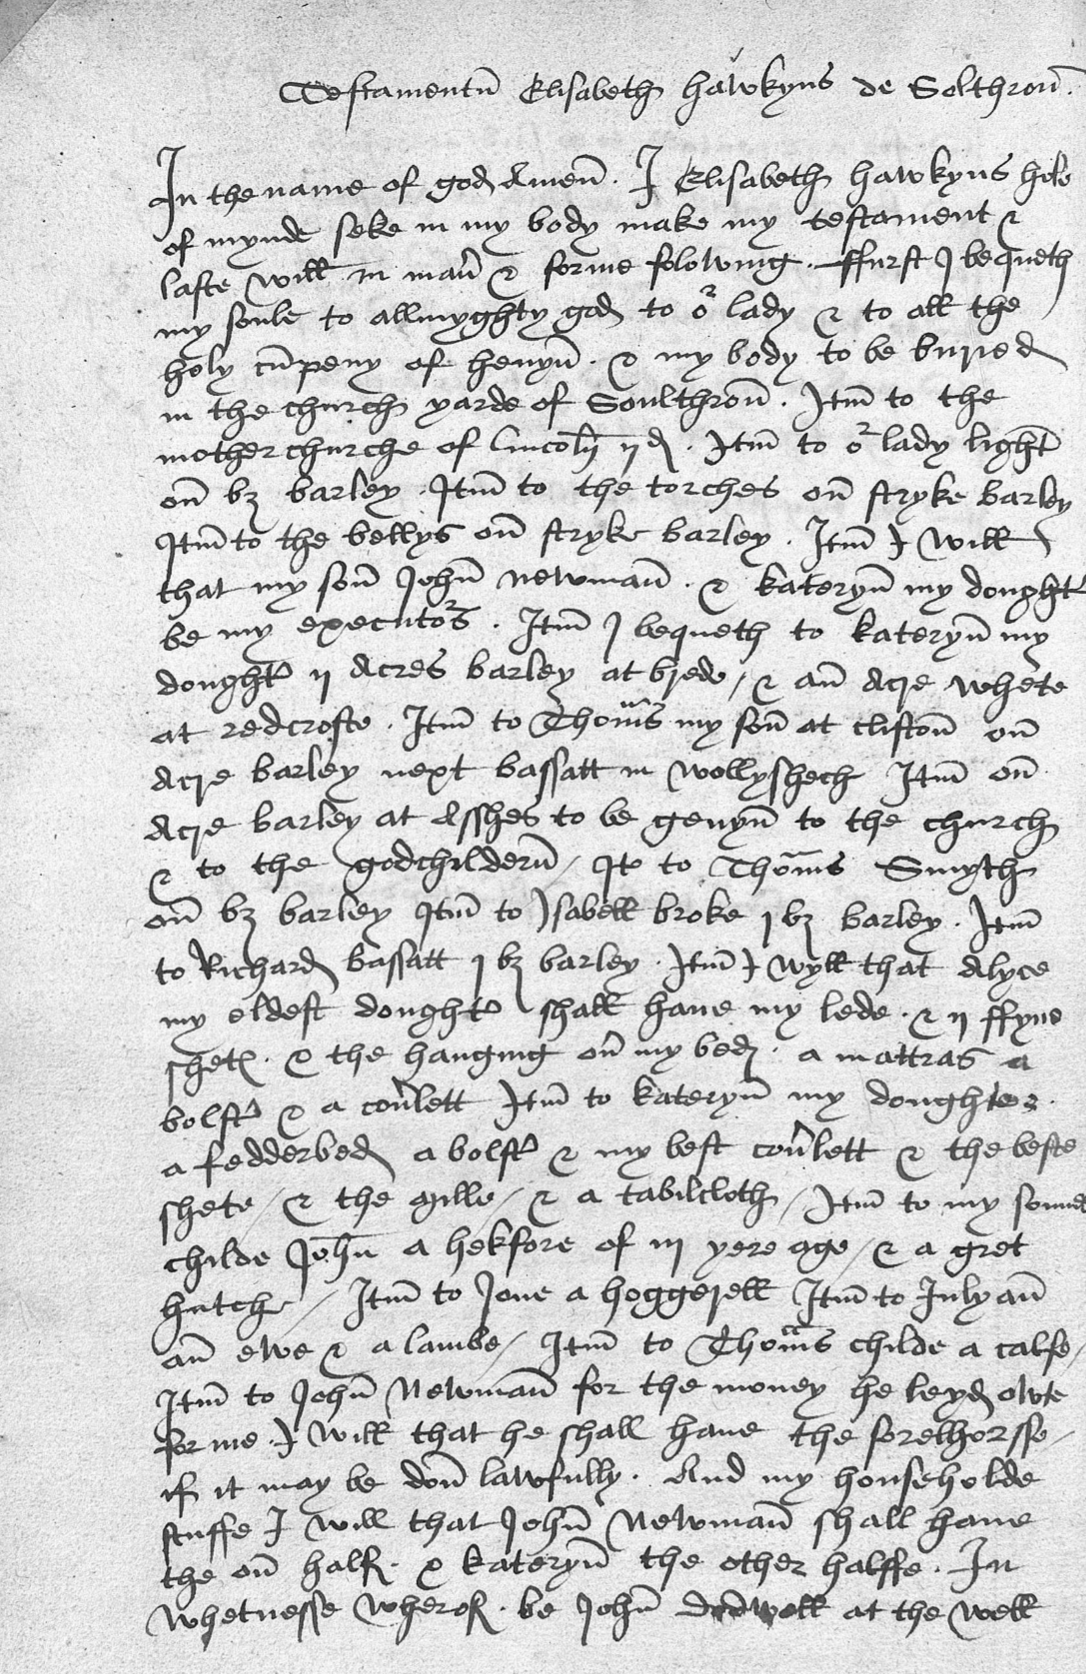 Testamentu͞ Elisabeth hawkyns de Solthron͞.
In the name of god Amen͞. I Elisabeth hawkyns hole
of mynde seke in my body make my testament &
laste will in man͛ & forme folowing. ffurst I bequeth
my soule to allmyghty god to oʳ lady & to all the
holy cu͞peny of heuyn͞. & my body to be buried
in the church yarde of Soulthron͞. Itm͞ to the
mother churche of lincoln͞ ij d. Itm͞ to oʳ lady light
on͞ bz barley. Itm͞ to the torches on͞ stryke barley
Itm͞ to the bellys on͞ stryke barley. Itm͞ I will
that my son͞ John͞ newman͞. & kateryn͞ my dought͛
be my executoʳs. Itm͞ I bequeth to kateryn͞ my
dought͛ ij Acres barley at brede / & an͞ Acre whete
at redcrofte. Itm͞ to Thom͞s my son͞ at clifton͞ on͞
Acre barley next bassatt in wollyshech Itm͞ on͞
Acre barley at Asshes to be geuyn͞ to the church
& to the godchildern͞ / It͛ to Thom͞s Smyth
on͞ bz barley Itm͞ to Isabell broke j bz barley. Itm͞
to Richard bassatt j bz barley. Itm͞ I wyll that Alyce
my eldest dought͛ shall haue my lede. & ij ffyne
shetes. & the hanging on͞ my bed. a mattras a
bolst͛ & a cou͛lett Itm͞ to kateryn͞ my doughter.
a fedderbed a bolst͛ & my best cou͛lett & the beste
shete / & the / & a tabilcloth / Itm͞ to my sonnes
childe Joh͞n a hekfore of iij yere age / & a gret
hutche / Itm͞ to Jone a hoggerell Itm͞ to Julyan͞
an͞ ewe & a lambe / Itm͞ to Thom͞s childe a calfe /
Itm͞ to John͞ Newman͞ for the money he leyd owte
for me I will that he shall haue the sorelhorsse /
if it may be don͞ lawfully. And my householde
stuffe I will that John͞ Newman͞ shall haue
the on͞ halfe. & kateryn͞ the other halffe. In
whetnesse wherof. be John͞ at the well